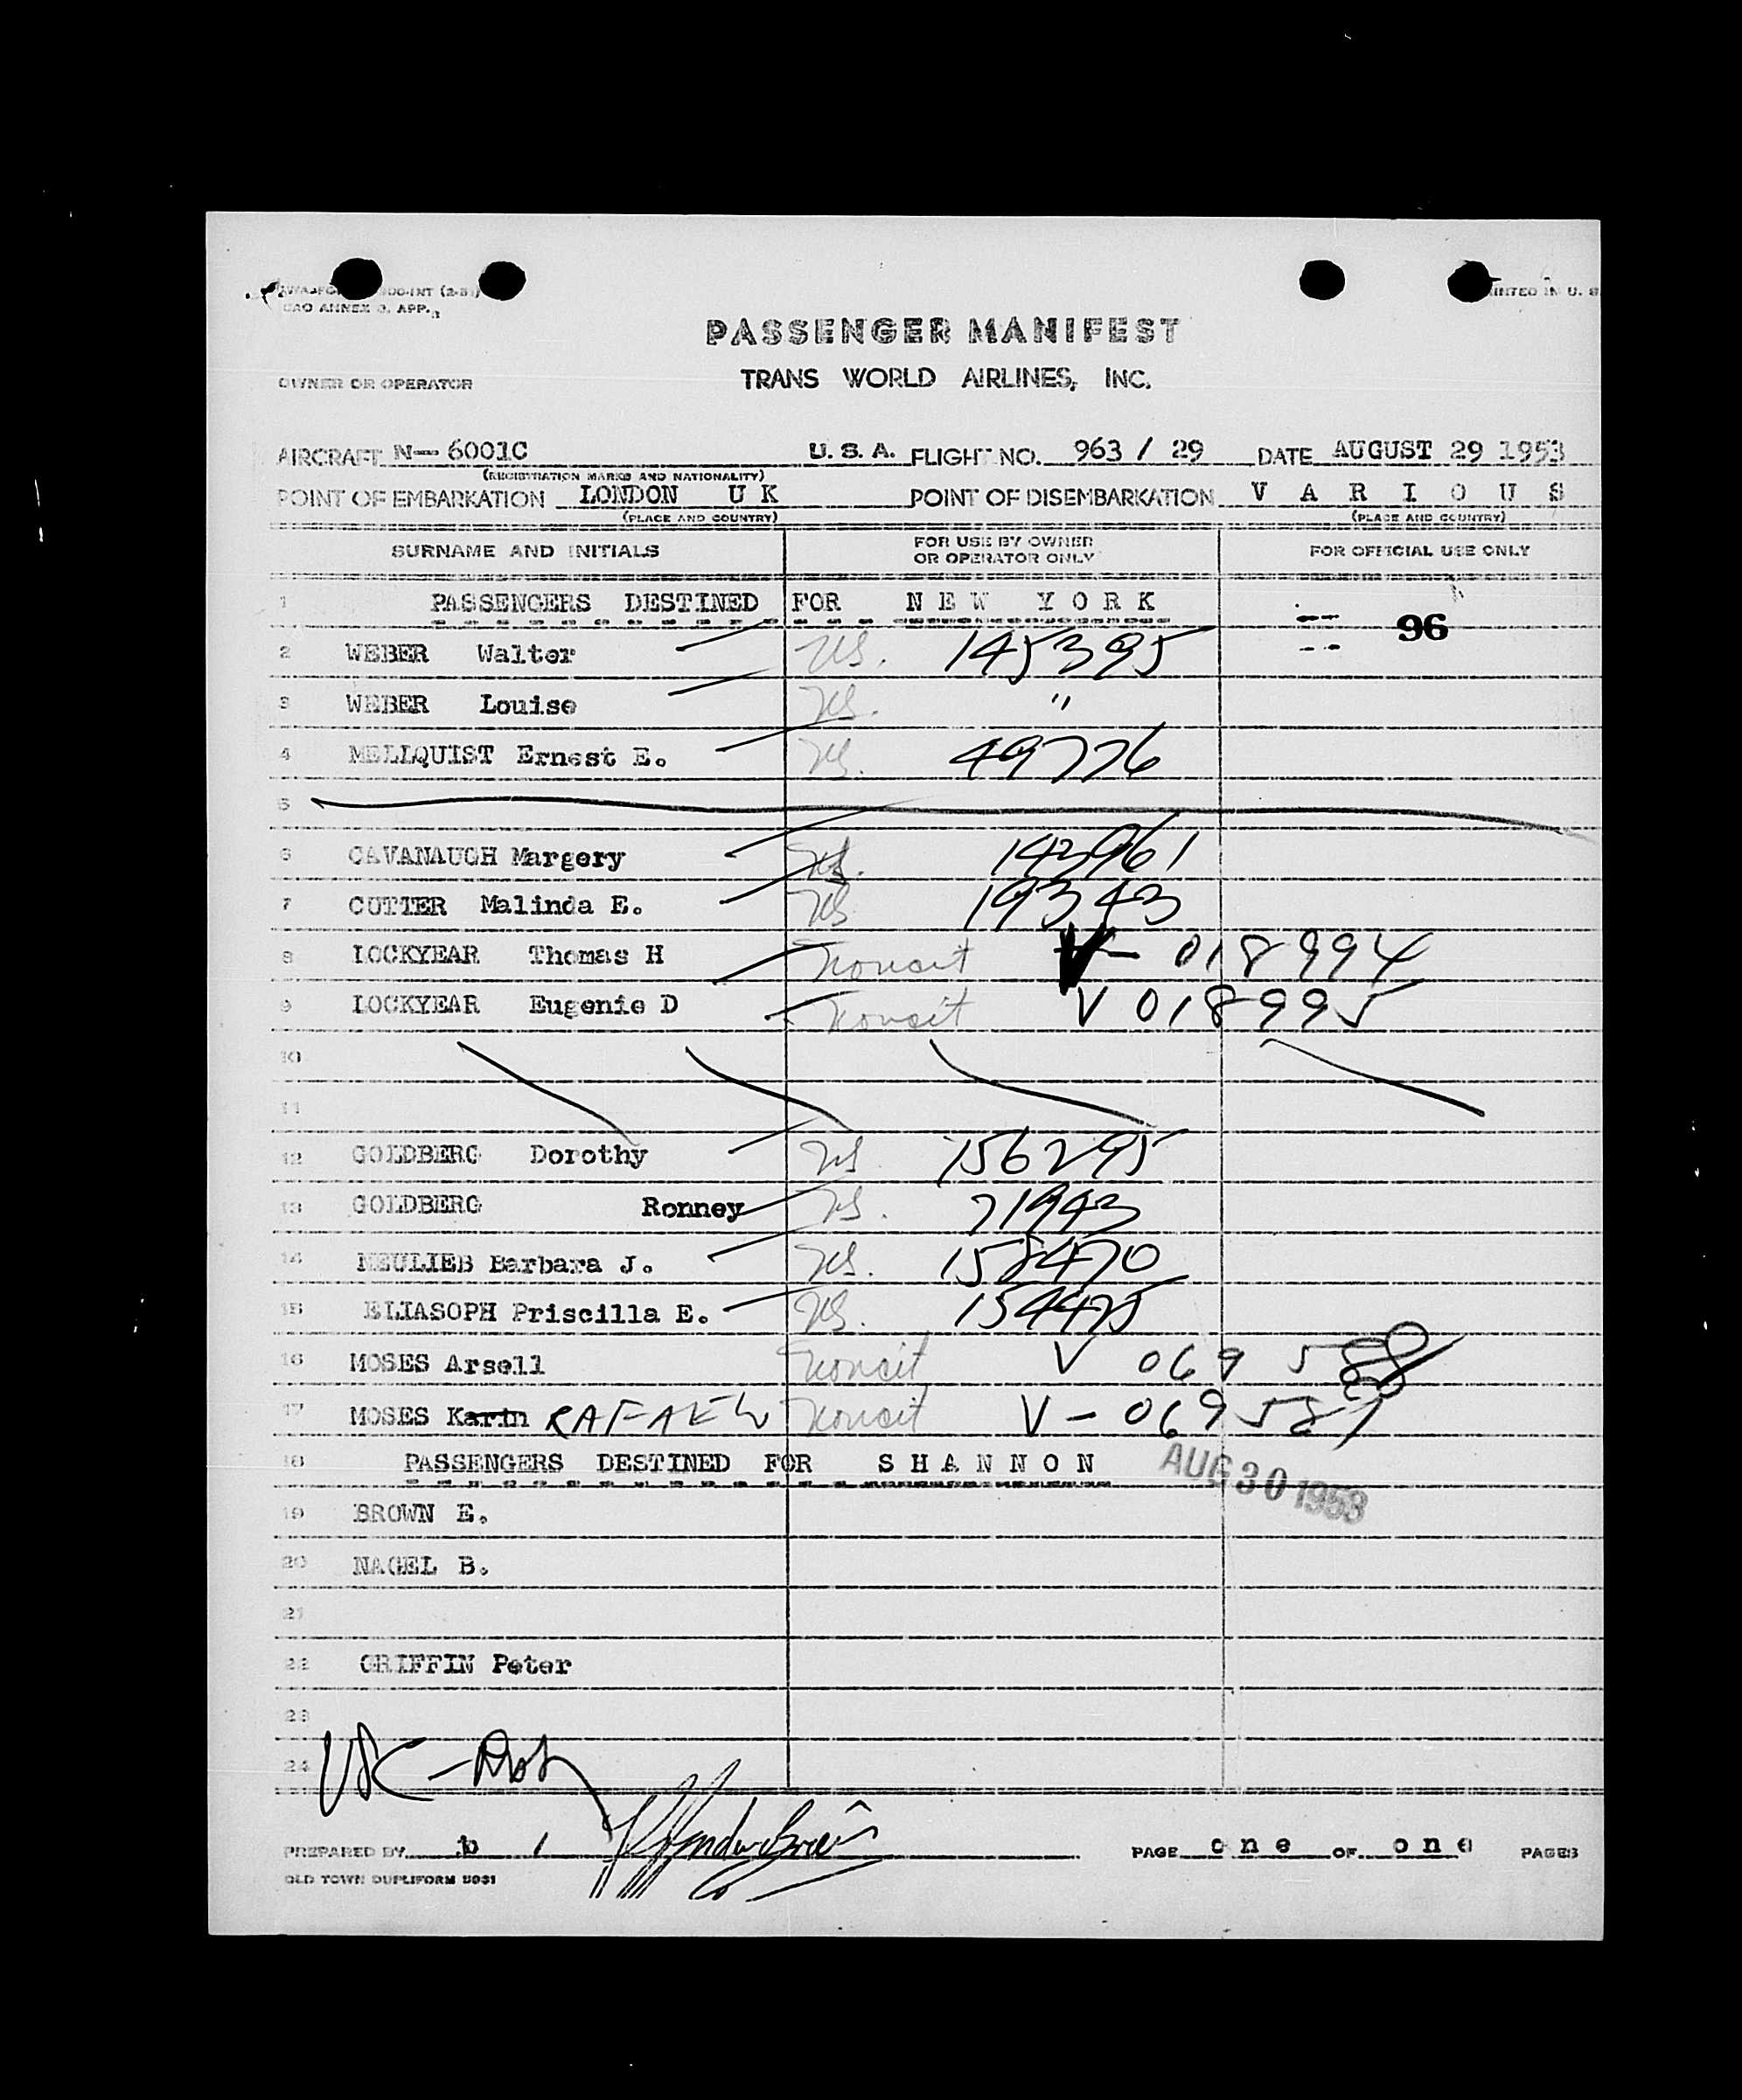 CAO ANNEX 9, APP. 3
PRINTED IN U. S.
PASSENGER MANIFEST
OWNER OR OPERATOR TRANS WORLD AIRLINES, INC.
AIRCRAFT N— 6001C U. S. A. FLIGHT NO. 963 / 29 DATE AUGUST 29 1953
(REGISTRATION MARKS AND NATIONALITY)
POINT OF EMBARKATION LONDON U K POINT OF DISEMBARKATION V A R I O U S
(PLACE AND COUNTRY) (PLACE AND COUNTRY)
SURNAME AND INITIALS FOR USE BY OWNER OR OPERATOR ONLY FOR OFFICIAL USE ONLY
1 PASSENGERS DESTINED FOR N E W Y O R K
96
2 WEBER Walter US. 145395
3 WEBER Louise US. "
4 MELLQUIST Ernest E. US. 49776
5
6 CAVANAUGH Margery US. 143961
7 CUTTER Malinda E. US 19343
8 LOCKYEAR Thomas H V- 018994
9 LOCKYEAR Eugenie D V 018995
10
11
12 GOLDBERG Dorothy US 156295
13 GOLDBERG Ronney US. 71943
14 NEULIEB Barbara J. US. 158470
15 ELIASOPH Priscilla E. US. 154475
16 MOSES Arsell V 069 588
17 MOSES Karin RAFAEL V - 069587
18 PASSENGERS DESTINED FOR S H A N N O N
AUG 30 1953
19 BROWN E.
20 NAGEL B.
21
22 GRIFFIN Peter
23
24
USC -
PREPARED BY b / PAGE o n e OF o n e PAGES
OLD TOWN DUPLIFORM